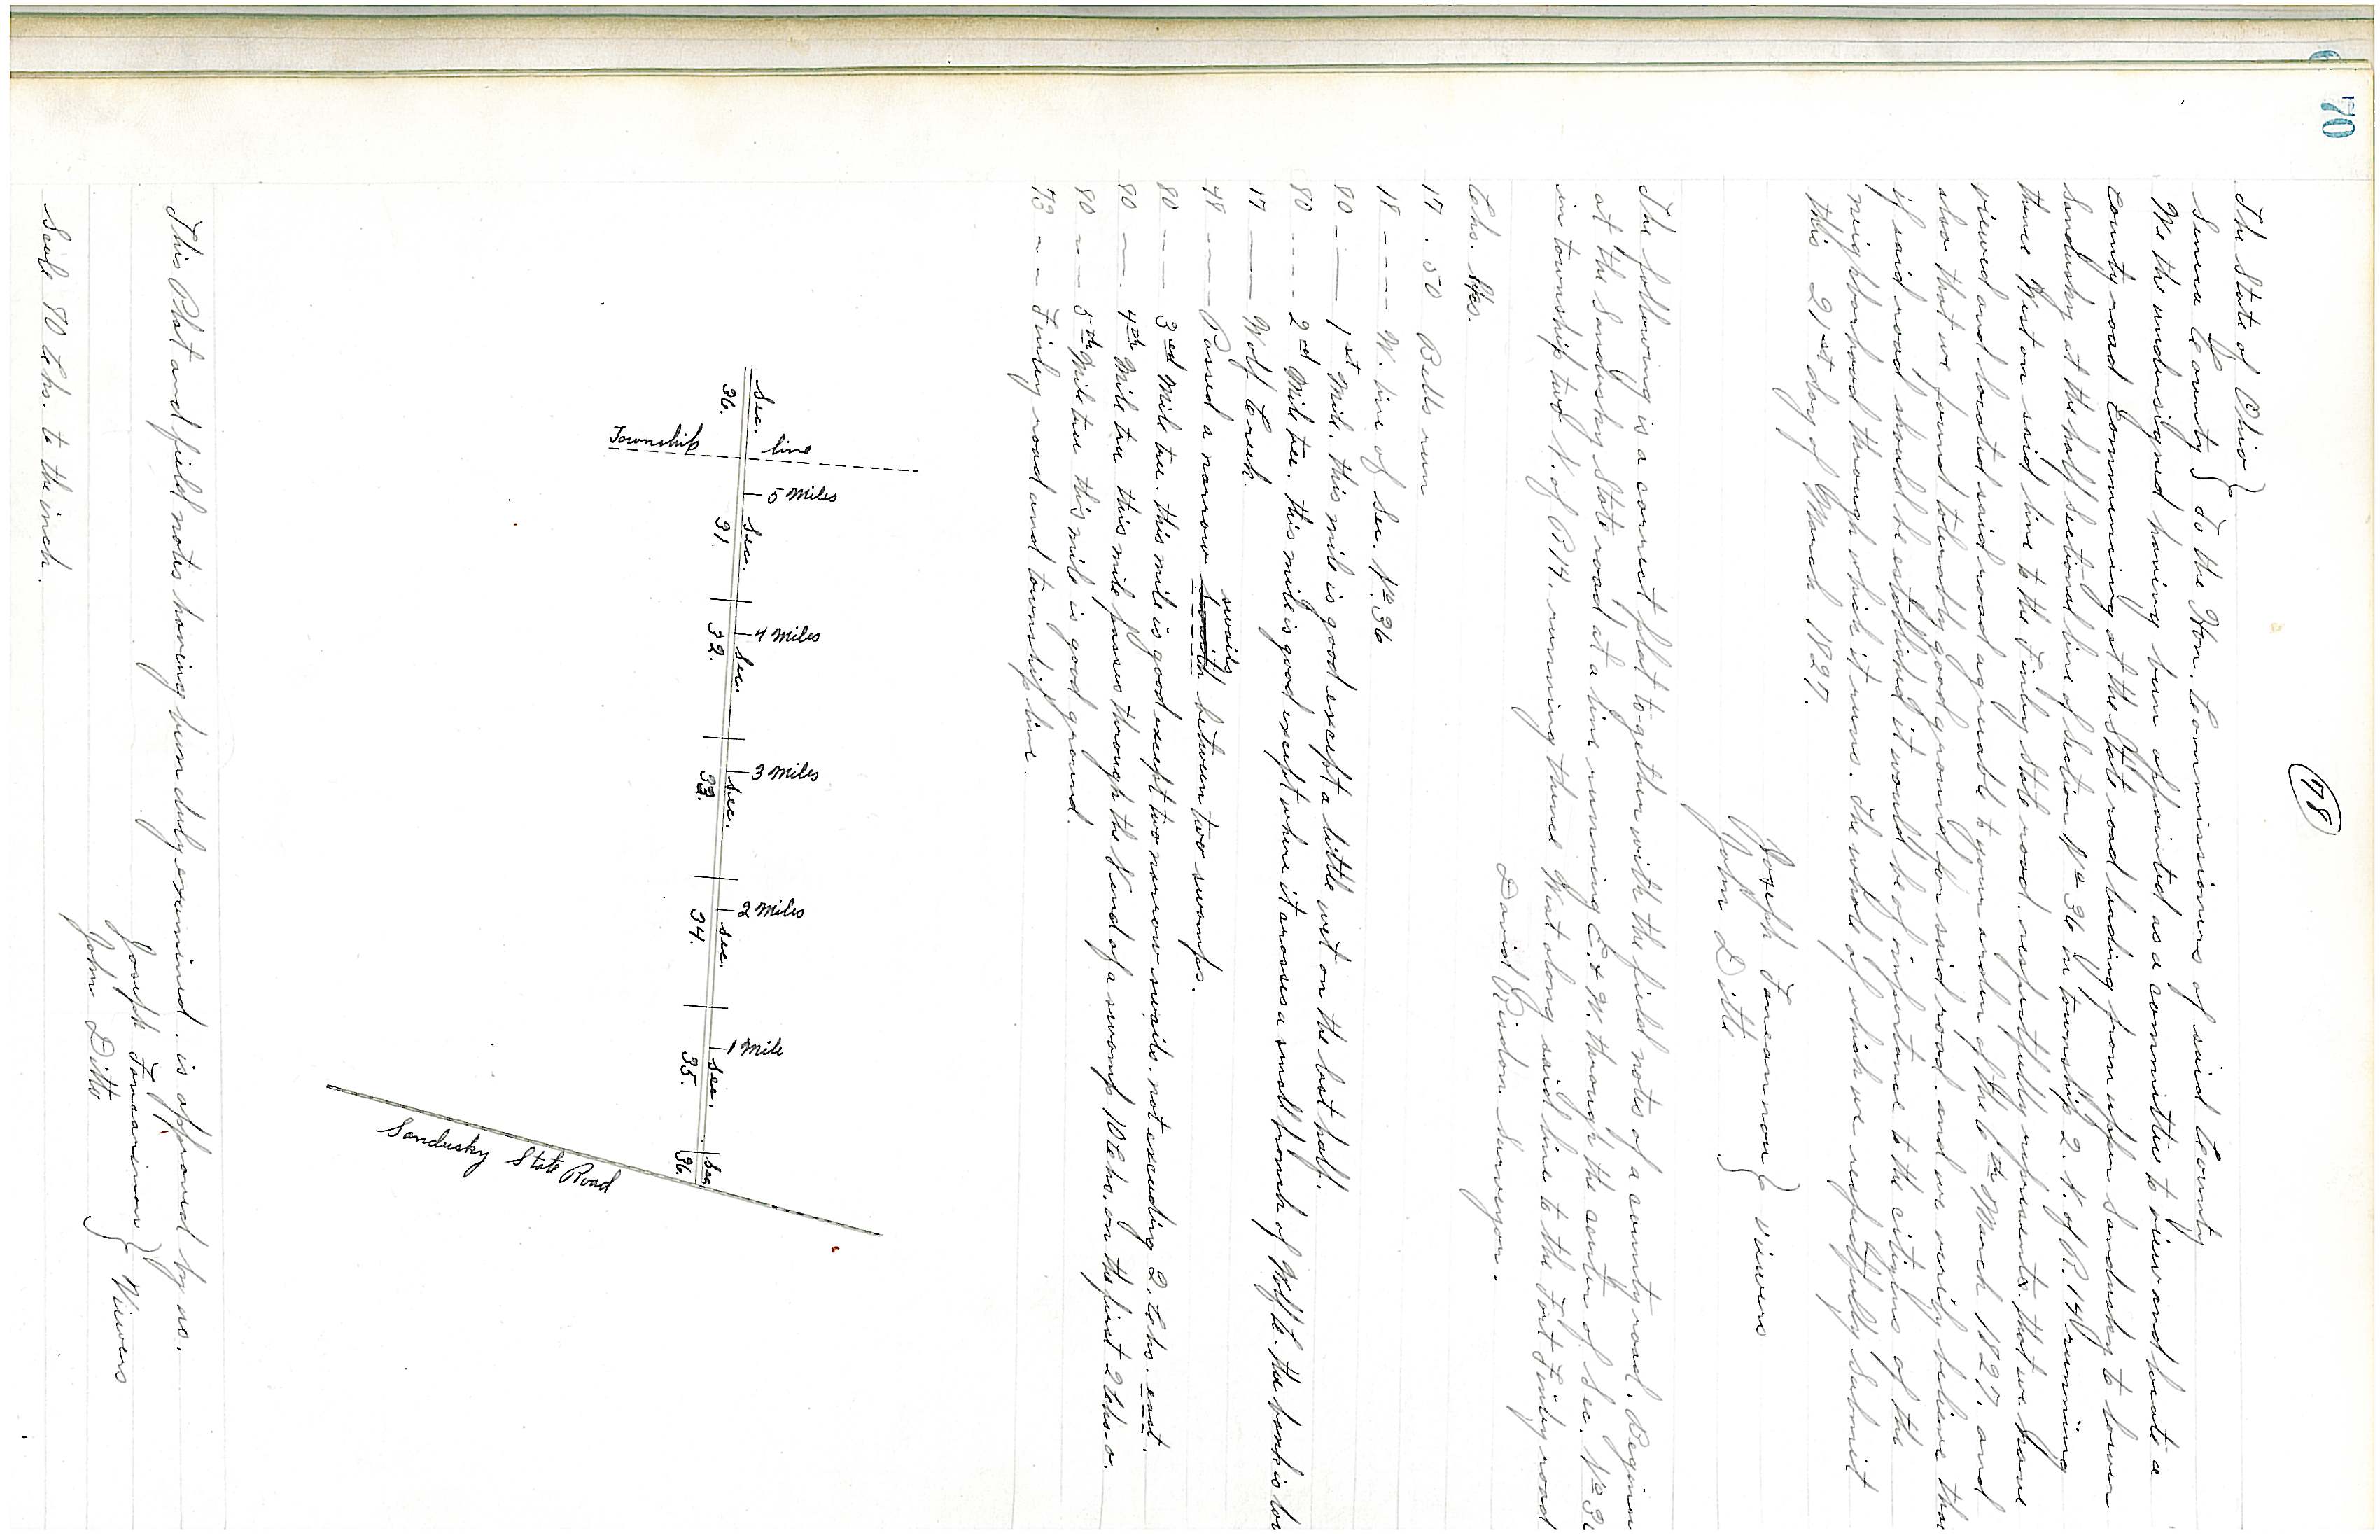 70
78
The State of Ohio }
Seneca County } To the Hon. Commissioners of said County
We the undersigned having been appointed as a committee to view and locate a
County road Commencing at the State road leading from upper Sandusky to lower
Sandusky at the half sectional line of section No 36 in township 2. N. of R. 14 running
thence West on said line to the Finley State road. respectfully represents. that we have
viewed and located said road agreeable to your order of the 6th March 1827. and
also that we found tolerably good ground for said road. and we verily believe that
if said road should be established it would be of importance to the citizens of the
neighborhood through which it runs. The whole of which we respectfully Submit
this 21st day of March 1827.
Joseph
John Ditto } viewers
The following is a correct plat together with the field notes of a county road. Beginning
at the Sandusky State road at a line running E. & W. through the center of Sec. No 36
in township two N. of R 14. running thence West along said line to the Fort Finley road
David Risdon Surveyor.
Chs. lks.
17 . 50 Bells run
18 - - - - W. line of Sec. No 36
80 - - - 1st Mile. this mile is good except a little wet on the last half.
80 - - - - 2ed Mile tree. this mile is good except where it crosses a small branch of Wolf C. the bank is low
17 - - - Wolf Creek.
swails
48 - - - Passed a narrow between two swamps.
80 - - - 3ed Mile tree. this mile is good except two narrow swails. not exceeding 2. Chs. east.
80 - - . 4th Mile tree this mile passes through the N end of a swamp 10 Chs. on the first 2 Chs. o.
80 - - - 5th Mile tree this mile is good ground.
73 - - - Finley road and township line.
Sec. 36.
Township line
5 Miles
Sec. 31.
4 Miles
Sec. 32.
3 Miles
Sec. 33.
2 Miles
Sec. 34.
1 Mile
Sec. 35.
Sec. 36.
Sandusky State Road
This Plat and field notes having been duly examined. is approved by us.
Joseph
John Ditto } Viewers
Scale 80 Chs. to the inch.